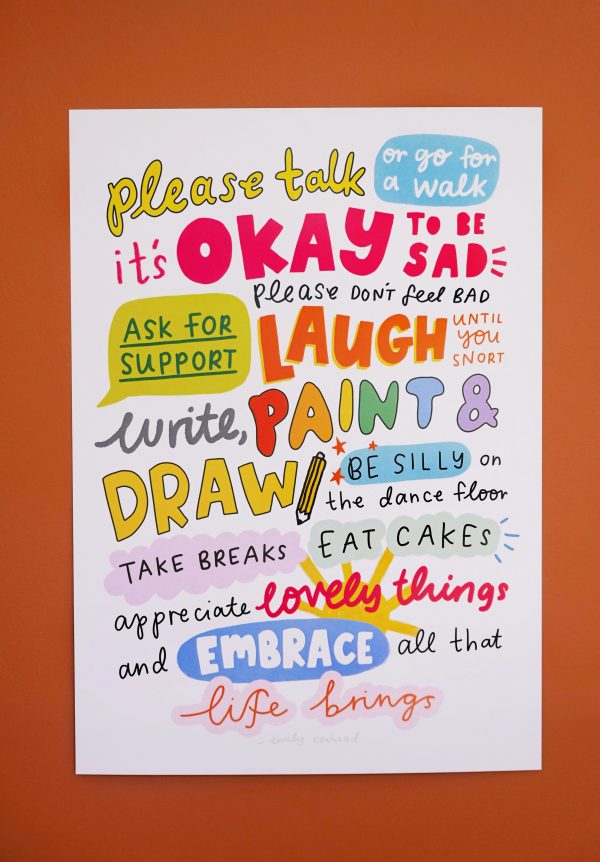 please talk or go for a walk
it's OKAY TO BE SAD
please DON'T feel BAD
ASK FOR SUPPORT
LAUGH UNTIL you SNORT
write, PAINT &
DRAW BE SILLY on the dance floor
TAKE BREAKS EAT CAKEs
appreciate lovely things
and EMBRACE all that
life brings
- emily coxhead